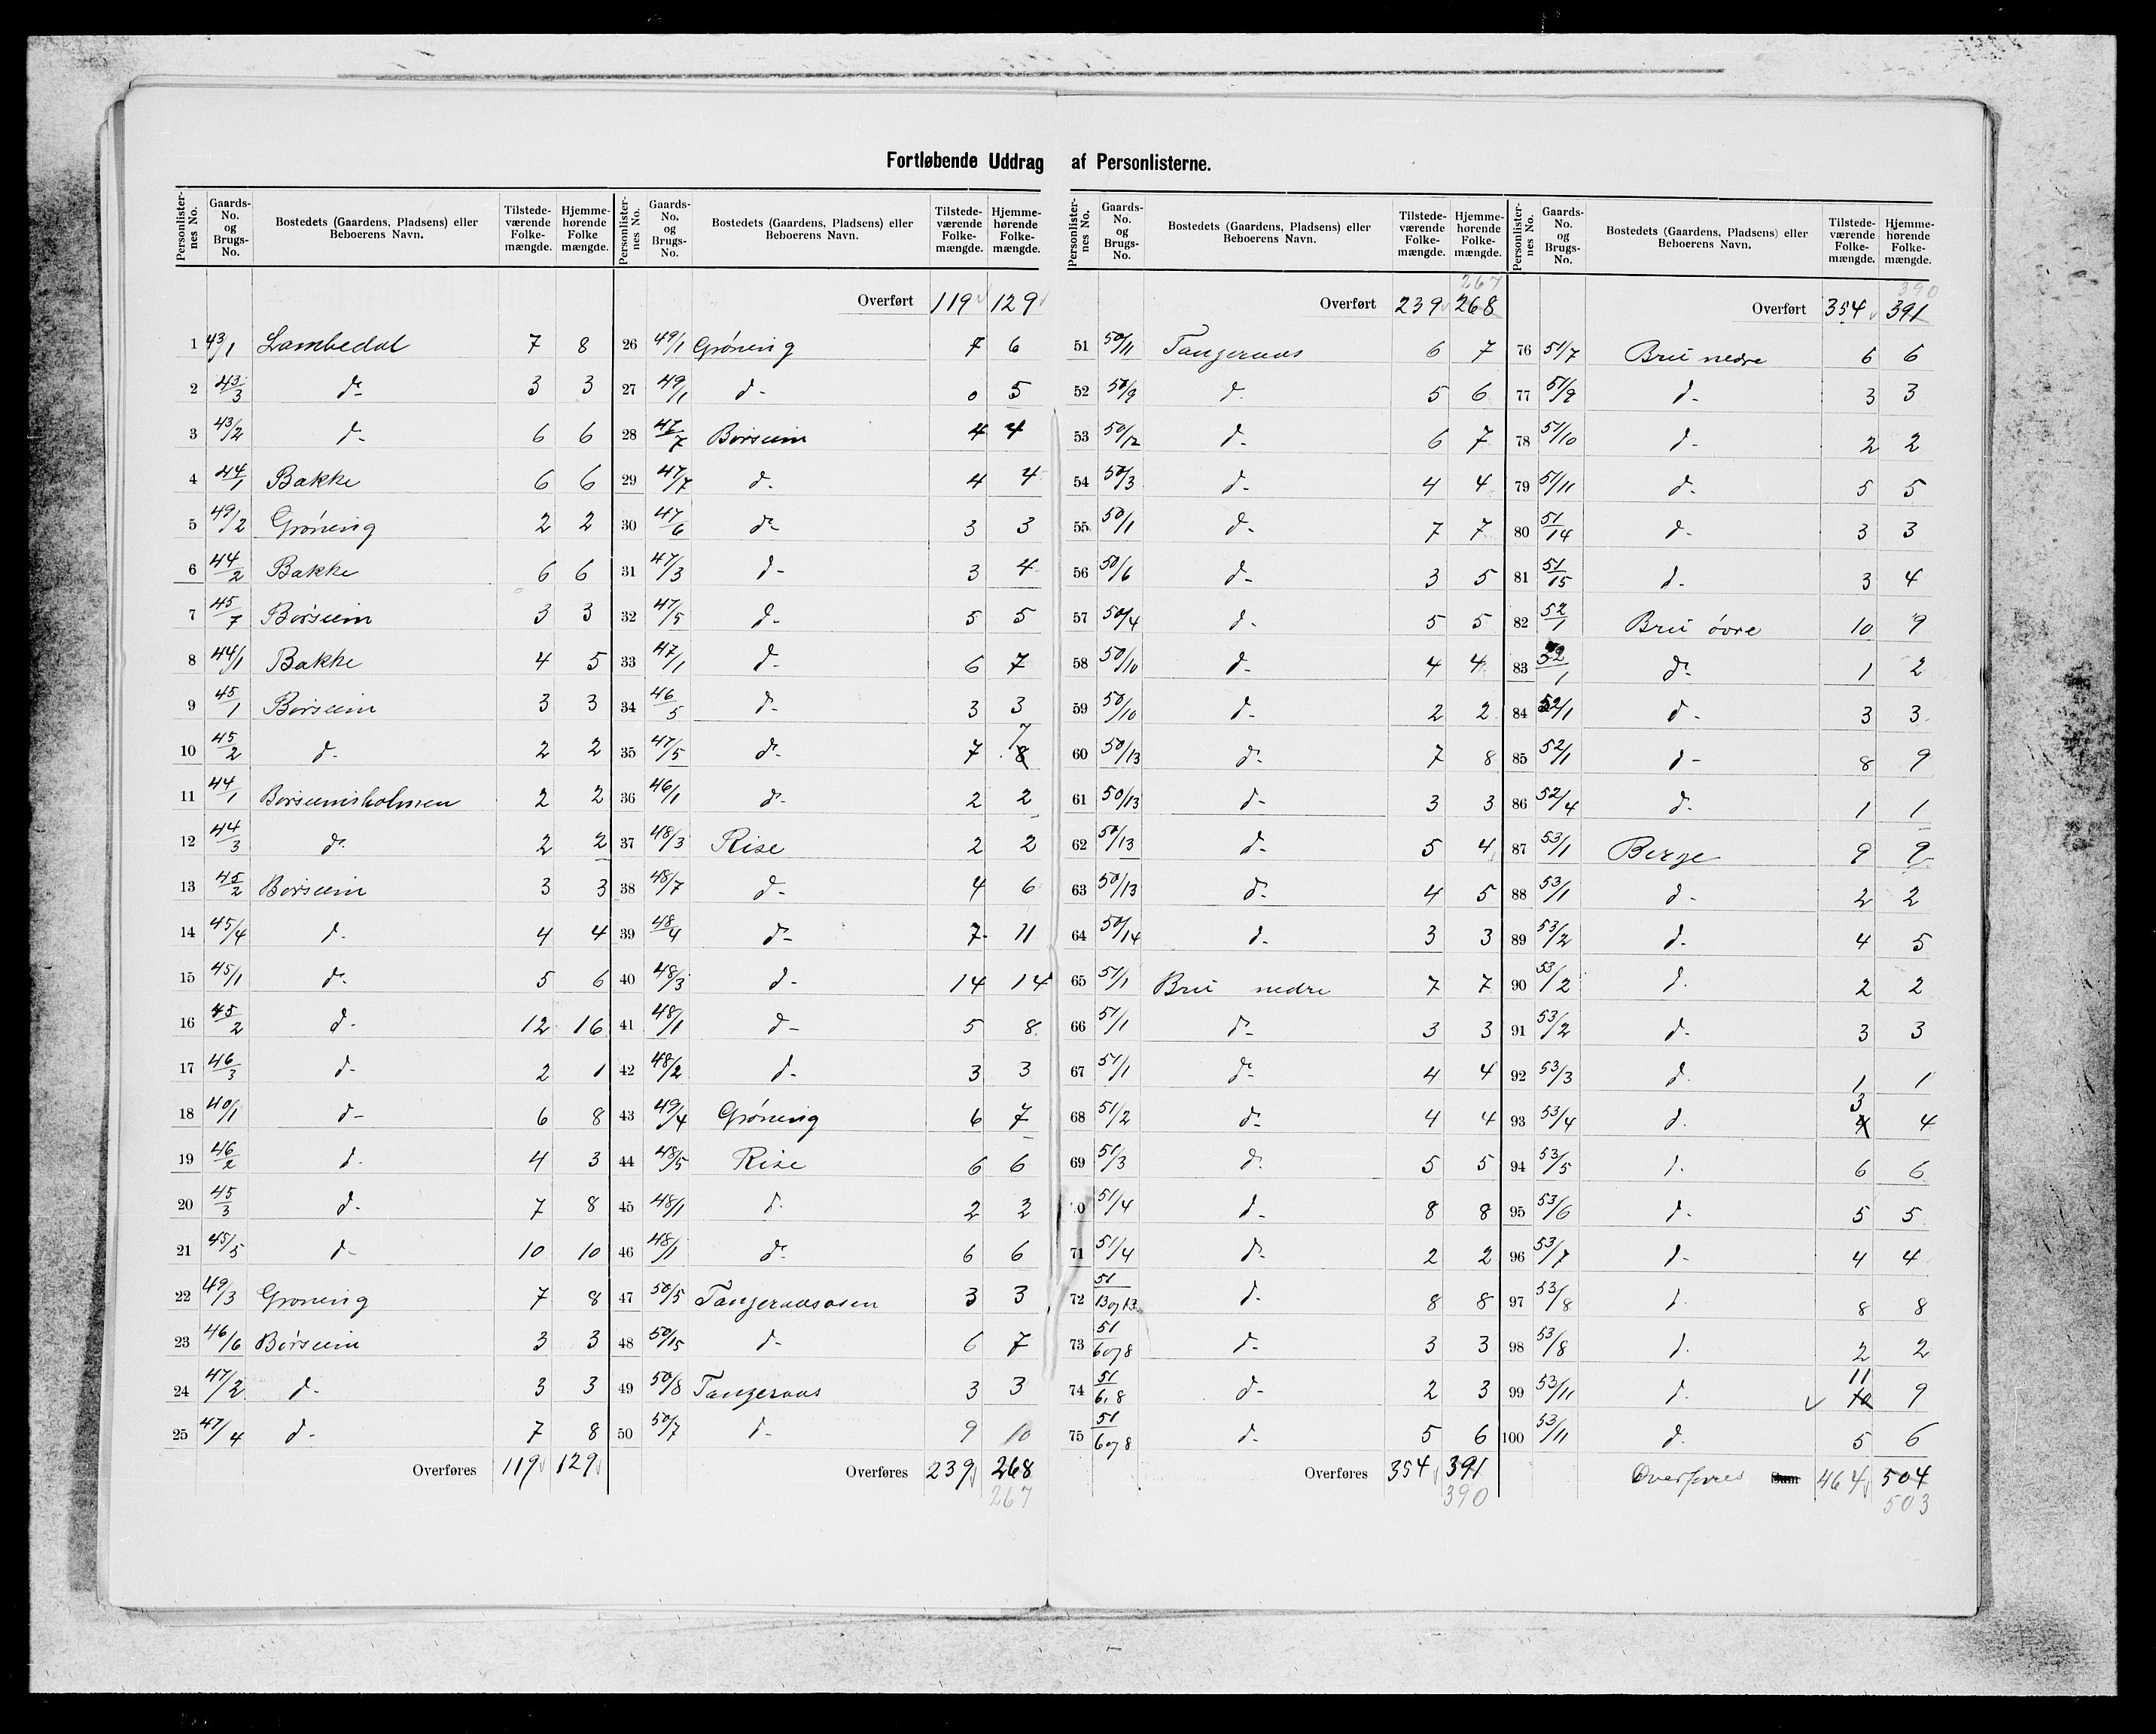 Fortløbende Uddrag af Personlisterne.
Personlisternes No. | Gaards-No. og Brugs-No. | Bostedets (Gaardens, Pladsens) eller Beboerens Navn. | Tilstedeværende Folkemængde. | Hjemmehørende Folkemængde.
1 43/1 Lambedal 7 8
2 43/3 do 3 3
3 43/2 do 6 6
4 44/1 Bakke 6 6
5 49/2 Gröning 2 2
6 44/2 Bakke 6 6
7 45/7 Börseim 3 3
8 44/1 Bakke 4 5
9 45/1 Börseim 3 3
10 45/2 do 2 2
11 44/1 Börseimsholmen 2 2
12 44/3 do 2 2
13 45/2 Börseim 3 3
14 45/4 do 4 4
15 45/1 do 5 6
16 45/2 do 12 16
17 46/3 do 2 1
18 40/1 do 6 8
19 46/2 do 4 3
20 45/3 do 7 8
21 45/5 do 10 10
22 49/3 Gröning 7 8
23 46/6 Börseim 3 3
24 47/2 do 3 3
25 47/4 do 7 8
Overføres 119 129
Personlisternes No. | Gaards-No. og Brugs-No. | Bostedets (Gaardens, Pladsens) eller Beboerens Navn. | Tilstedeværende Folkemængde. | Hjemmehørende Folkemængde.
Overført 119 129
26 49/1 Gröning 7 6
27 49/1 do 0 5
28 47/7 Börseim 4 4
29 47/7 do 4 4
30 47/6 do 3 3
31 47/3 do 3 4
32 47/5 do 5 5
33 47/1 do 6 7
34 46/5 do 3 3
35 47/5 do 7 8 7
36 46/1 do 2 2
37 48/3 Rise 2 2
38 48/7 do 4 6
39 48/4 do 7 11
40 48/3 do 14 14
41 48/1 do 5 8
42 48/2 do 3 3
43 49/4 Gröning 6 7
44 48/5 Rise 6 6
45 48/1 do 2 2
46 48/1 do 6 6
47 50/5 Tangeraasosen 3 3
48 50/15 do 6 7
49 50/8 Tangeraas 3 3
50 50/7 do 9 10
Overføres 239 268
267
Personlisternes No. | Gaards-No. og Brugs-No. | Bostedets (Gaardens, Pladsens) eller Beboerens Navn. | Tilstedeværende Folkemængde. | Hjemmehørende Folkemængde.
267
Overført 239 268
51 50/11 Tangeraas 6 7
52 50/9 do 5 6
53 50/12 do 6 7
54 50/3 do 4 4
55 50/1 do 7 7
56 50/6 do 3 5
57 50/4 do 5 5
58 50/10 do 4 4
59 50/10 do 2 2
60 50/13 do 7 8
61 50/13 do 3 3
62 50/13 do 5 4
63 50/13 do 4 5
64 50/14 do 3 3
65 51/1 Bru nedre 7 7
66 51/1 do 3 3
67 51/1 do 4 4
68 51/2 do 4 4
69 51/3 do 5 5
0 51/4 do 8 8
71 51/4 do 2 2
72 51/13 og 13 do 8 8
73 51/6 og 8 do 3 3
74 51/6, 8 do 2 3
75 51/6 og 8 do 5 6
Overføres 354 391
390
Personlisternes No. | Gaards-No. og Brugs-No. | Bostedets (Gaardens, Pladsens) eller Beboerens Navn. | Tilstedeværende Folkemængde. | Hjemmehørende Folkemængde.
390
Overført 354 391
76 51/7 Bru nedre 6 6
77 51/9 do 3 3
78 51/10 do 2 2
79 51/11 do 5 5
80 51/14 do 3 3
81 51/15 do 3 4
82 52/1 Bru övre 10 9
83 52/1 do 1 2
84 52/1 do 3 3
85 52/1 do 8 9
86 52/4 do 1 1
87 53/1 Berge 9 9
88 53/1 do 2 2
89 53/2 do 4 5
90 53/2 do 2 2
91 53/2 do 3 3
92 53/3 do 1 1
93 53/4 do 4 3 4
94 53/5 do 6 6
95 53/6 do 5 5
96 53/7 do 4 4
97 53/8 do 8 8
98 53/8 do 2 2
99 53/11 do 10 11 9
100 53/11 do 5 6
Overføres Sum 464 504
503